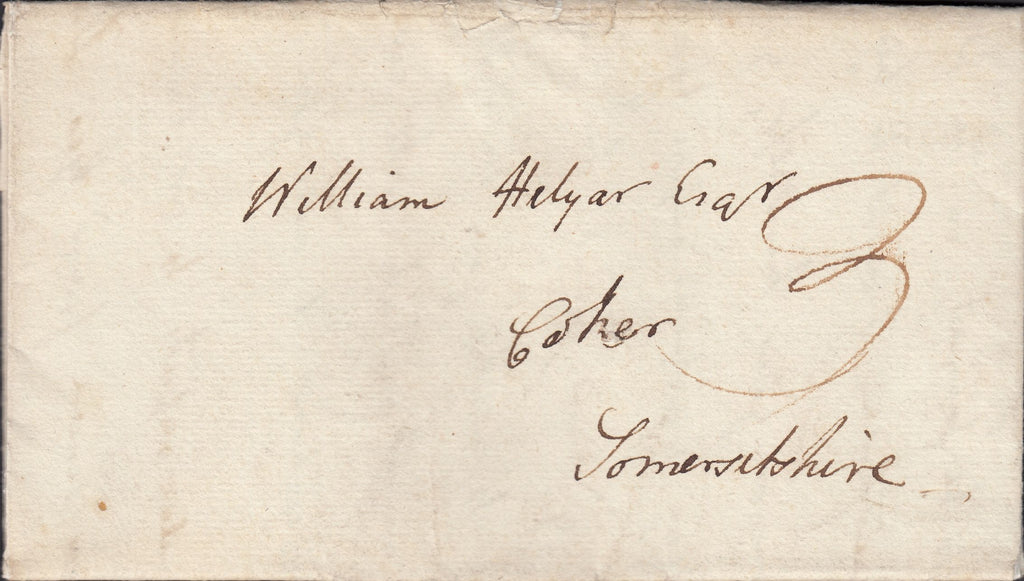 William Helyar Esqr
3
Coker
Somersetshire